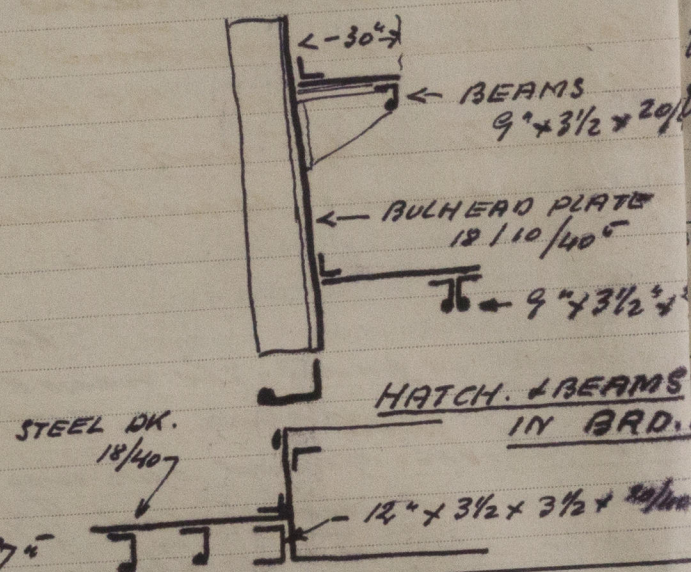 30"
BEAMS
9" x 3 1/2 x 20/
BULHEAD PLATE
18/10/40"
9" x 3 1/2" x
HATCH. & BEAMS
IN BRD.
STEEL DK.
18/40
12" x 3 1/2 x 3 1/2 x